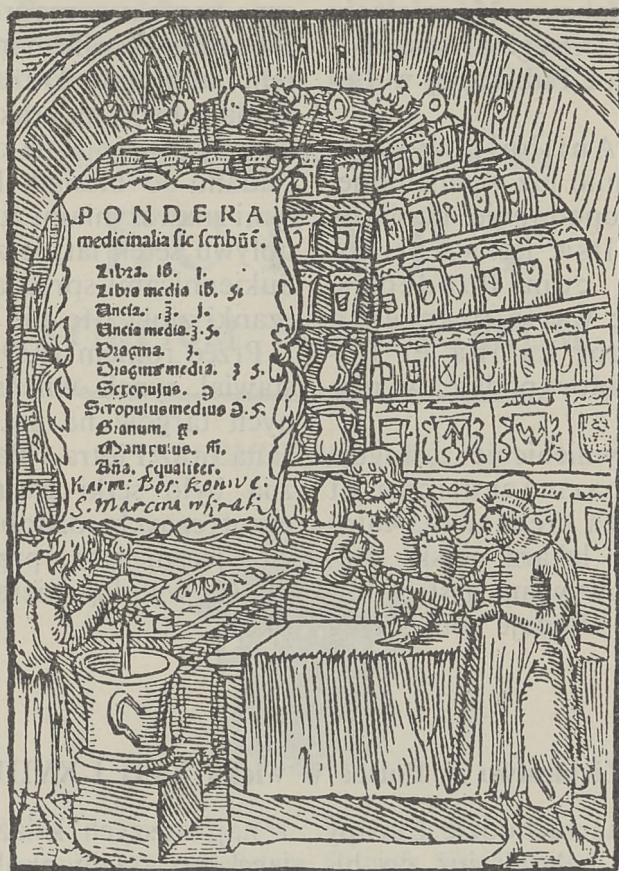 PONDERA
medicinalia sic scribũt.
Libra. lb. j.
Libra media lb. ß.
Uncia. ℥. j.
Uncia media. ℥. ß.
Dragma. ʒ.
Dragma media. ʒ ß.
Scropulus. ℈
Scropulus medius ℈. ß.
Granum. g̃.
Manipulus. m̃.
Aña. equaliter.
Karm: Bos: Konve.
S. Marcina
W